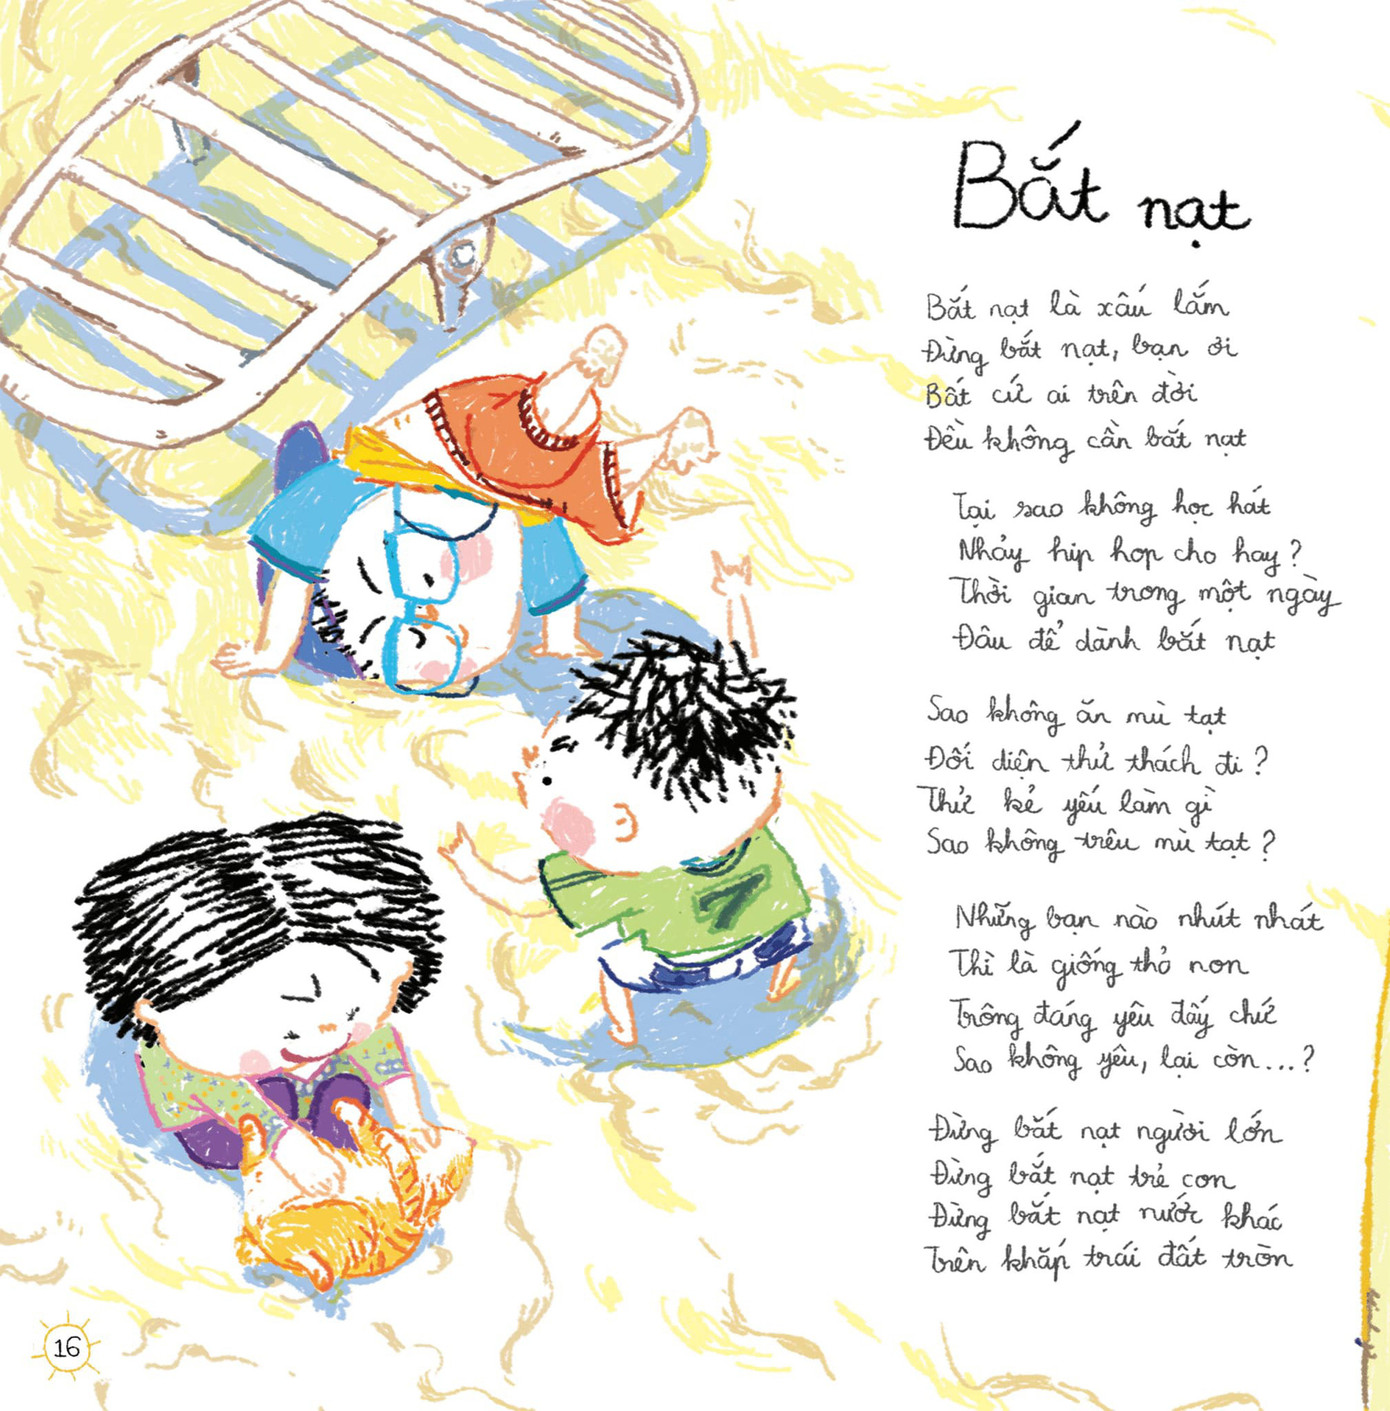 Bắt nạt
Bắt nạt là xấu lắm
Đừng bắt nạt, bạn ơi
Bất cứ ai trên đời
Đều không cần bắt nạt
Tại sao không học hát
Nhảy hip hop cho hay?
Thời gian trong một ngày
Đâu để dành bắt nạt
Sao không ăn mù tạt
Đối diện thử thách đi?
Thử kẻ yếu làm gì
Sao không trêu mù tạt?
Những bạn nào nhút nhát
Thì là giống thỏ non
Trông đáng yêu đấy chứ
Sao không yêu, lại còn...?
Đừng bắt nạt người lớn
Đừng bắt nạt trẻ con
Đừng bắt nạt nước khác
Trên khắp trái đất tròn
7
16